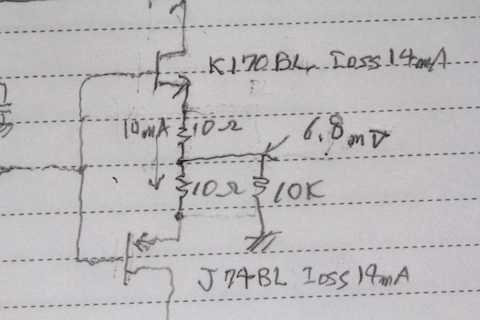 K170BL IDSS 14mA
10mA 10Ω 6.8mV
10Ω 10K
J74BL IDSS 14mA